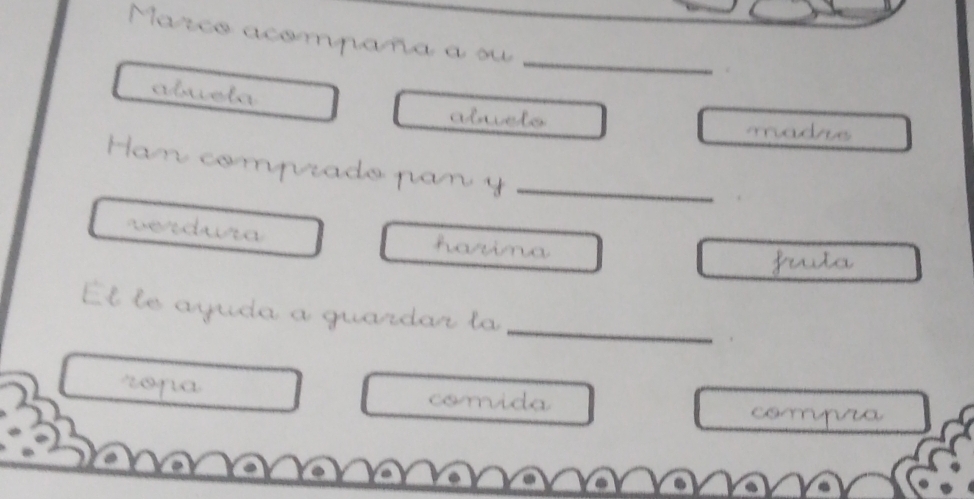 Marco acompaña a su ____________ .
abuela abuelo madre
Han comprado pan y ____________ .
verdura harina fruta
El le ayuda a guardar la ____________ .
ropa comida compra